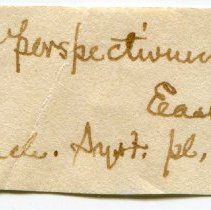 perspectivum
Eas
ch. Syst. pl.